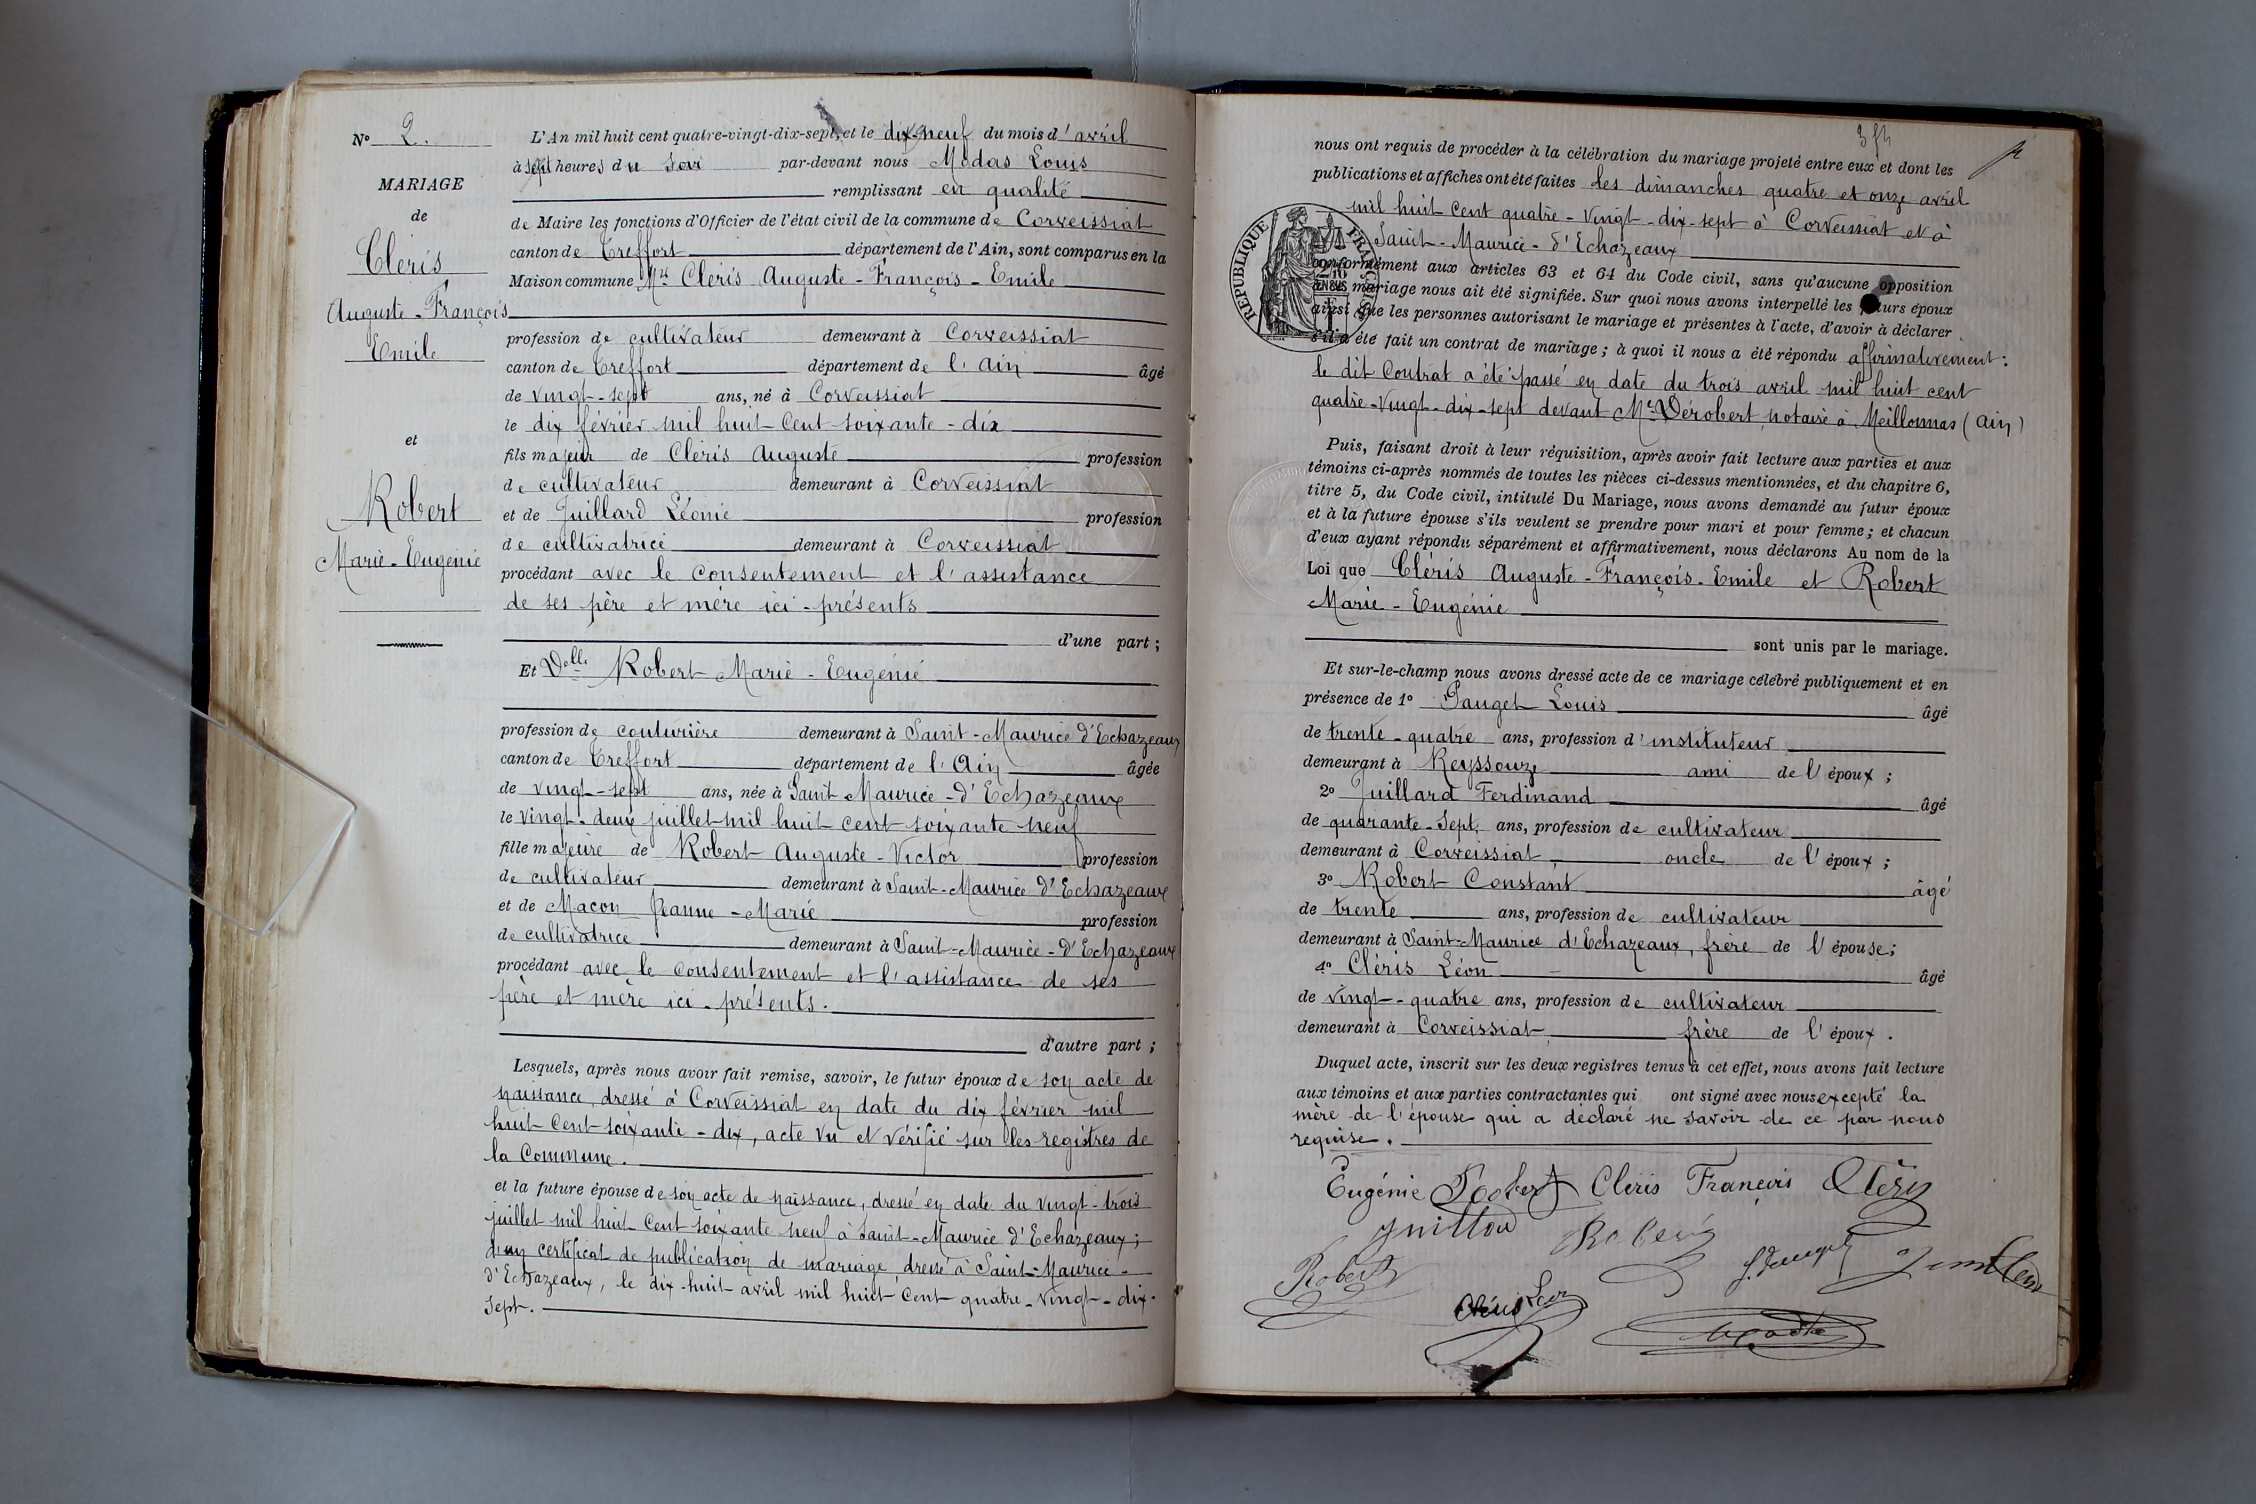 N° 2.
MARIAGE
de
Cléris
Auguste-François
Emile
et
Robert
Marie-Eugénie
L'An mil huit cent quatre-vingt-dix-sept, et le dix-neuf du mois d'avril
à sept heures du soir par-devant nous Modas Louis
remplissant en qualité
de Maire les fonctions d'Officier de l'état civil de la commune de Corveissiat
canton de Treffort département de l'Ain, sont comparus en la
Maison commune Cléris Auguste-François-Emile
profession de cultivateur demeurant à Corveissiat
canton de Treffort département de l'Ain âgé
de vingt-sept ans, né à Corveissiat
le dix février mil huit cent soixante-dix
fils majeur de Cléris Auguste profession
de cultivateur demeurant à Corveissiat
et de Juillard Léonie profession
de cultivatrice demeurant à Corveissiat
procédant avec le consentement et l'assistance
de ses père et mère ici-présents
d'une part ;
Et Delle Robert Marie-Eugénie
profession de couturière demeurant à Saint-Maurice d'Echazeaux
canton de Treffort département de l'Ain âgée
de vingt-sept ans, née à Saint Maurice-d'Echazeaux
le vingt-deux juillet mil huit cent soixante neuf
fille majeure de Robert Auguste-Victor profession
de cultivateur demeurant à Saint-Maurice d'Echazeaux
et de Macon Jeanne-Marie profession
de cultivatrice demeurant à Saint-Maurice-d'Echazeaux
procédant avec le consentement et l'assistance de ses
père et mère ici-présents.
d'autre part ;
Lesquels, après nous avoir fait remise, savoir, le futur époux de son acte de
naissance, dressé à Corveissiat en date du dix février mil
huit cent soixante-dix, acte vu et vérifié sur les registres de
la Commune.
et la future épouse de son acte de naissance, dressé en date du vingt-trois
juillet mil huit cent soixante neuf à Saint-Maurice d'Echazeaux ;
d'un certificat de publication de mariage dressé à Saint-Maurice-
d'Echazeaux, le dix-huit avril mil huit cent quatre-vingt-dix-
sept.
nous ont requis de procéder à la célébration du mariage projeté entre eux et dont les
publications et affiches ont été faites les dimanches quatre et onze avril
mil huit cent quatre-vingt-dix-sept à Corveissiat et à
Saint-Maurice-d'Echazeaux
REPUBLIQUE FRANÇAISE
conformément aux articles 63 et 64 du Code civil, sans qu'aucune opposition
mariage nous ait été signifiée. Sur quoi nous avons interpellé les futurs époux
ainsi que les personnes autorisant le mariage et présentes à l'acte, d'avoir à déclarer
s'il a été fait un contrat de mariage ; à quoi il nous a été répondu affirmativement :
le dit Contrat a été passé en date du trois avril mil huit cent
quatre-vingt-dix-sept devant Me Dérobert notaire à Meillonnas (Ain)
Puis, faisant droit à leur réquisition, après avoir fait lecture aux parties et aux
témoins ci-après nommés de toutes les pièces ci-dessus mentionnées, et du chapitre 6,
titre 5, du Code civil, intitulé Du Mariage, nous avons demandé au futur époux
et à la future épouse s'ils veulent se prendre pour mari et pour femme ; et chacun
d'eux ayant répondu séparément et affirmativement, nous déclarons Au nom de la
Loi que Cléris Auguste-François-Emile et Robert
Marie-Eugénie
sont unis par le mariage.
Et sur-le-champ nous avons dressé acte de ce mariage célébré publiquement et en
présence de 1° Pauget Louis âgé
de trente-quatre ans, profession d'instituteur
demeurant à Reyssouze ami de l'époux ;
2° Juillard Ferdinand âgé
de quarante-sept ans, profession de cultivateur
demeurant à Corveissiat, oncle de l'époux ;
3° Robert Constant âgé
de trente ans, profession de cultivateur
demeurant à Saint-Maurice d'Echazeaux, frère de l'épouse ;
4° Cléris Léon âgé
de vingt-quatre ans, profession de cultivateur
demeurant à Corveissiat, frère de l'époux.
Duquel acte, inscrit sur les deux registres tenus à cet effet, nous avons fait lecture
aux témoins et aux parties contractantes qui ont signé avec nous excepté la
mère de l'épouse qui a déclaré ne savoir de ce par nous
requise.
Eugénie Robert Cléris François Cléris
Robert
Robert
Cléris Léon